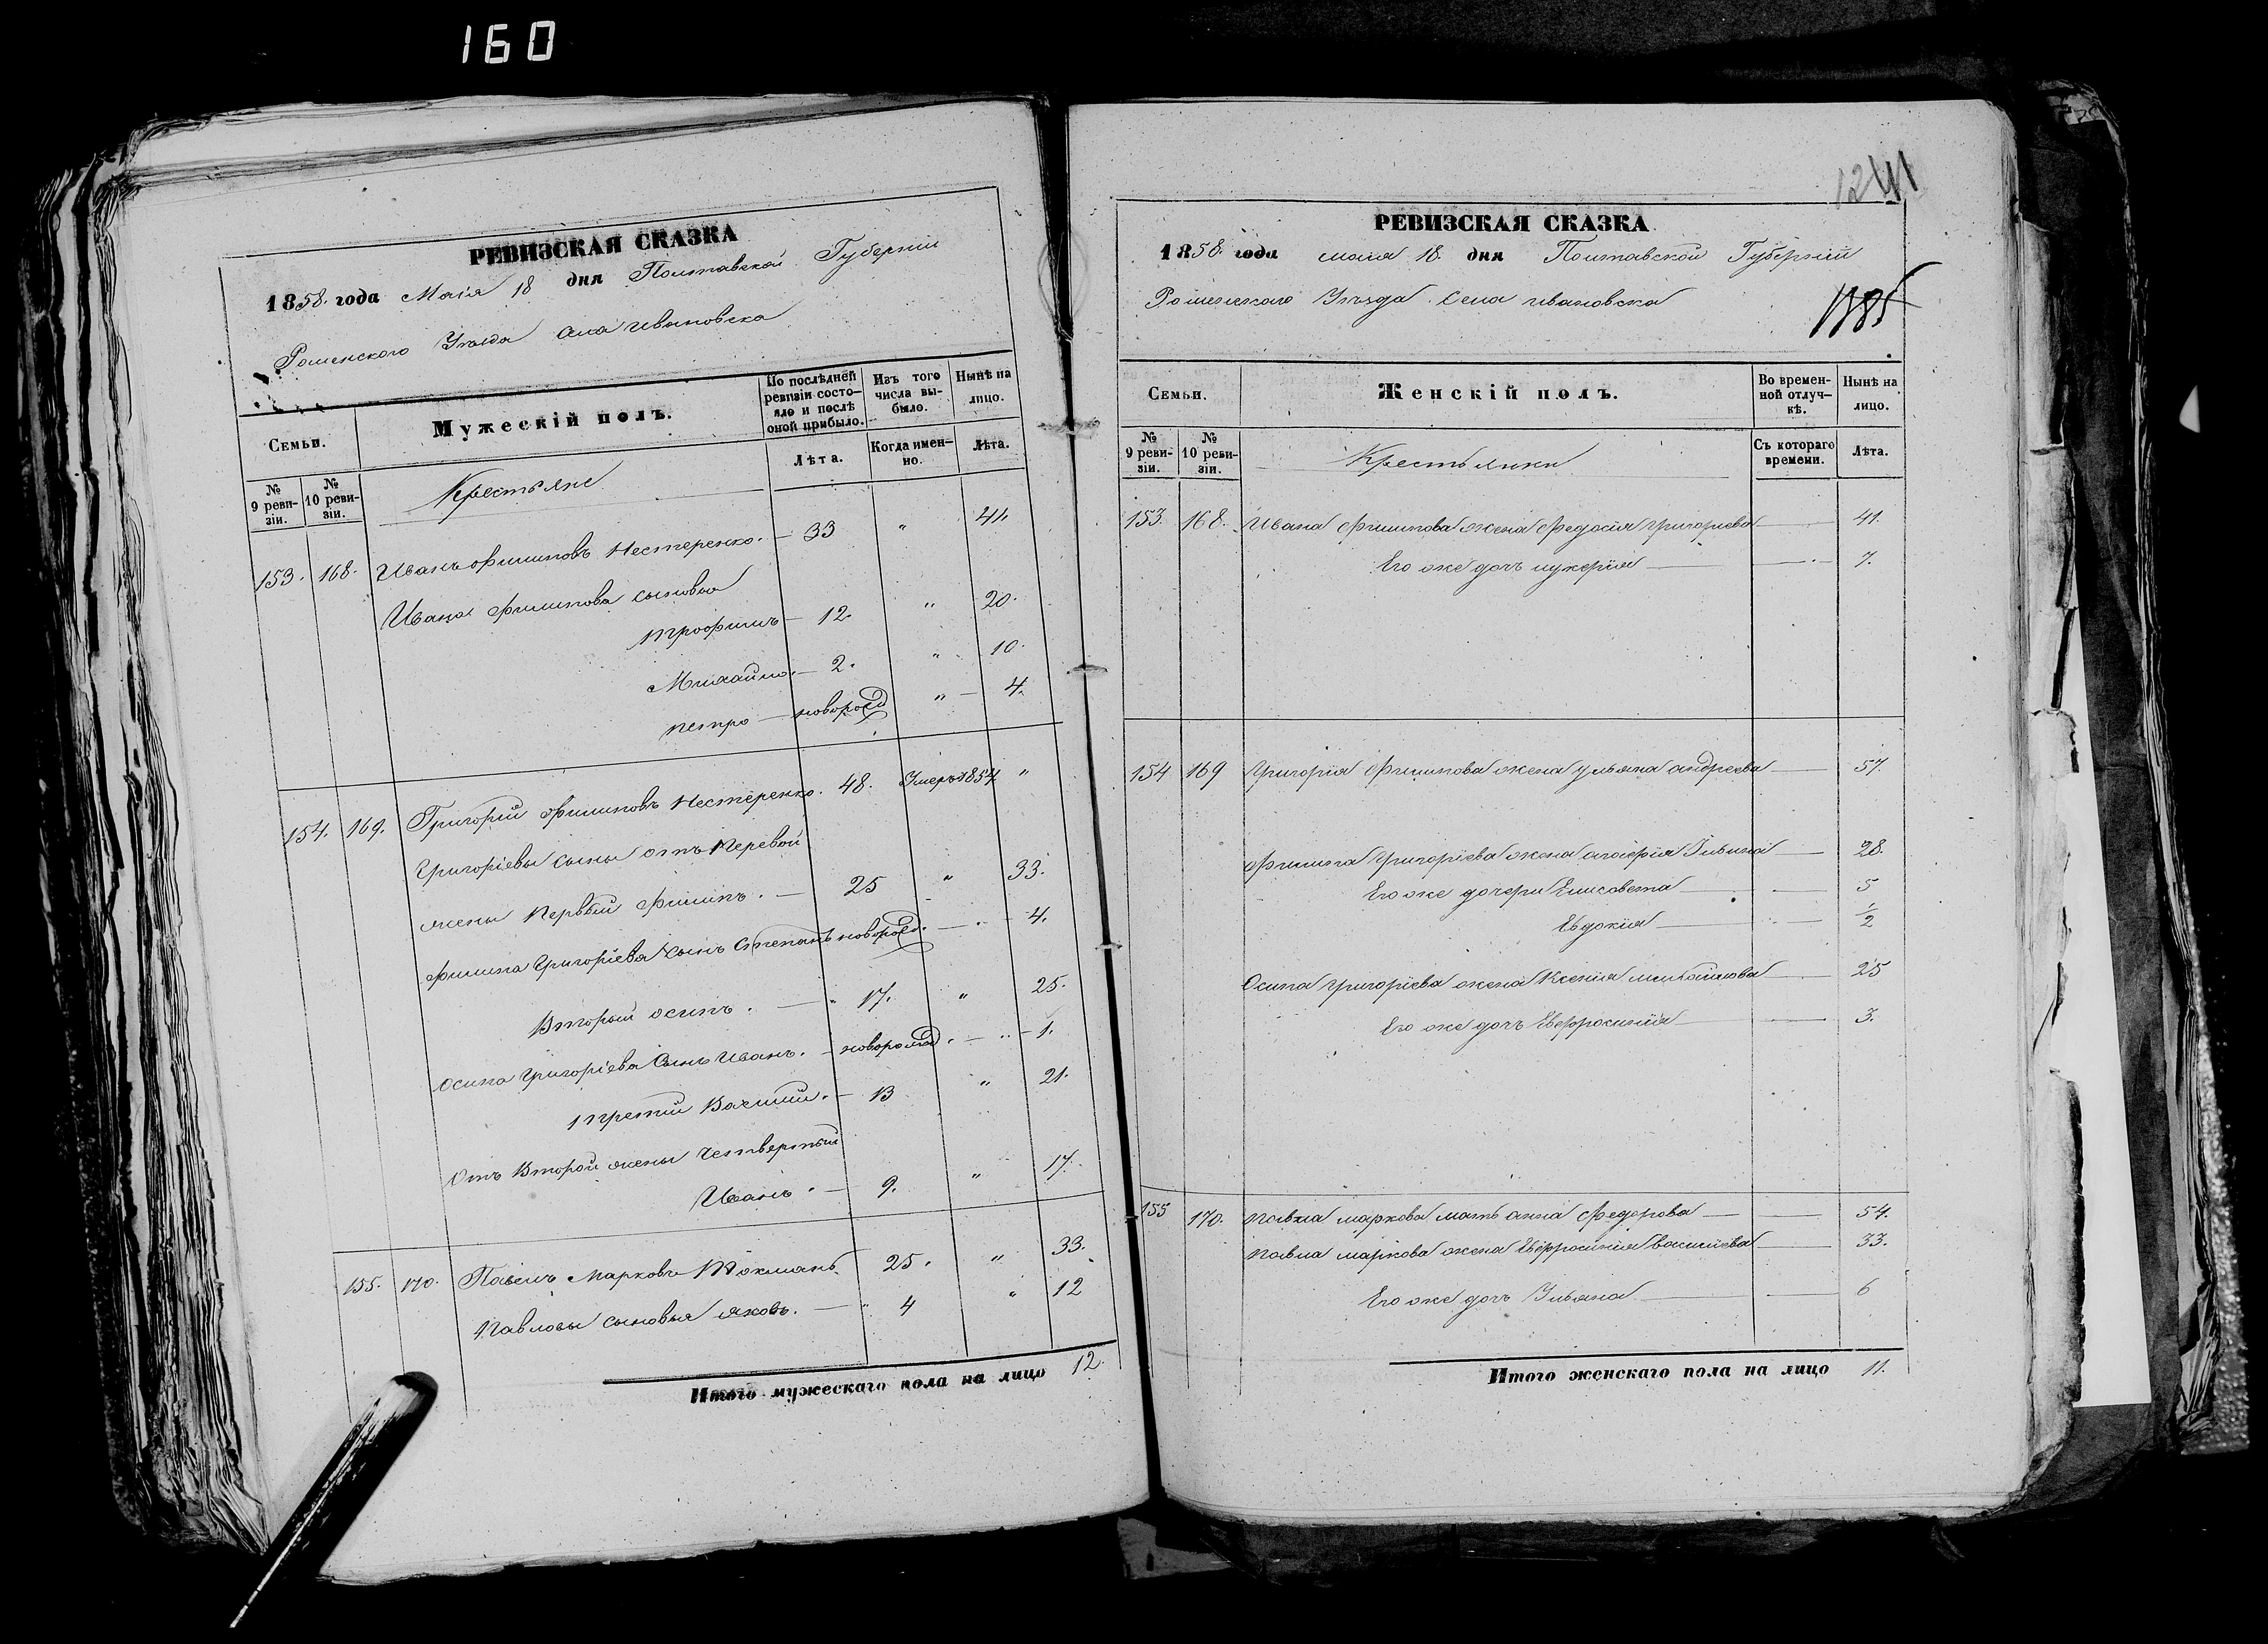 160
РЕВИЗСКАЯ СКАЗКА
1858. года Маія 18 дня Полтавской Губерніи
Роменского Уѣзда Села Ивановска
Семьи.
Мужескій полъ.
По послѣдней ревизіи состояло и послѣ оной прибыло.
Изъ того числа выбыло.
Нынѣ на лицо.
№ 9 ревизіи.
№ 10 ревизіи.
Крестьяне
Лѣта.
Когда именно.
Лѣта.
153. 168. Иванъ Филиповъ Нестеренко. — 33 " 41.
Ивана Филипова сыновья
Трофимъ — 12. " 20.
Михайло. — 2. " 10.
Петро — новорожд " — 4.
154. 169. Григорій Филиповъ Нестеренко. 48. Умеръ 1854 "
Григоріевы сыны отъ Первой
жены Первый Филипъ. — 25 " 33.
Филипа Григоріева сынъ Степанъ новорожд. — " — 4.
Вторый Осипъ. — " 17. " 25.
Осипа Григоріева Сынъ Иванъ. — новорожд. — " — 1.
Третій Василій. — 13 " 21.
Отъ Второй жены Четвертый
Иванъ. — 9. " 17.
155. 170. Павелъ Марковъ Токманъ 25. " 33.
Павловы сыновья Яковъ. — " 4 " 12
Итого мужескаго пола на лицо 12.
1241
РЕВИЗСКАЯ СКАЗКА
1858. года маія 18. дня Полтавской Губерніи
Роменского Уѣзда Села Ивановска
Семьи.
Женскій полъ.
Во временной отлучкѣ.
Нынѣ на лицо.
№ 9 ревизіи.
№ 10 ревизіи.
Крестьянки
Съ котораго времени.
Лѣта.
153. 168. Ивана Филипова жена Федосія Григориева — 41.
Его же дочь Лукерія — 7.
154 169 Григорія Филипова жена Ульяна Андреева — 57.
Филипа Григоріева жена Ильина — 28.
Его же дочери Елисовета — 5
Евдокія — 1/2
Осипа Григоріева жена Ксенія Михайлова — 25
Его же дочь Евфросинія — 3.
155 170. Павла Маркова мать Анна Федорова — 54.
Павла Маркова жена Евфросинія Василіева — 33.
Его же дочь Ульяна — 6
Итого женскаго пола на лицо 11.